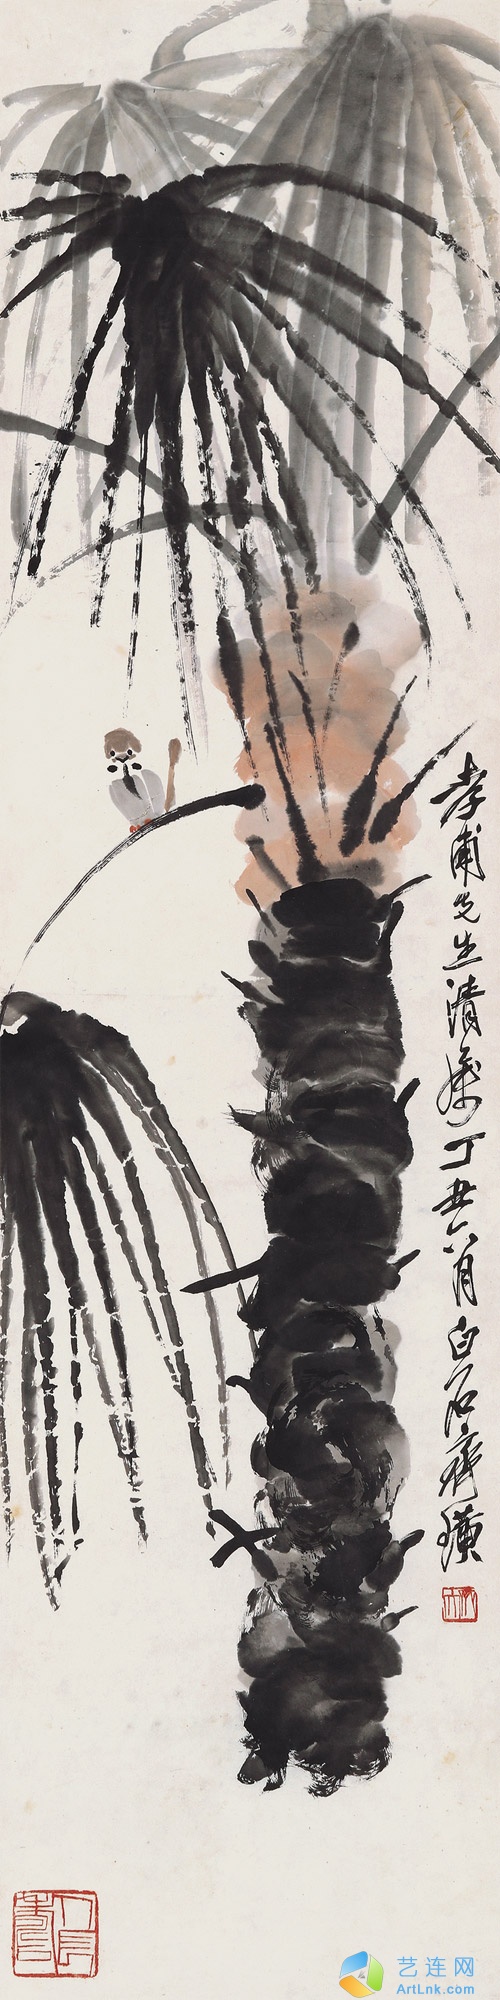 孝甫先生清属丁丑六月白石齐璜
艺连网
ArtLnk.com